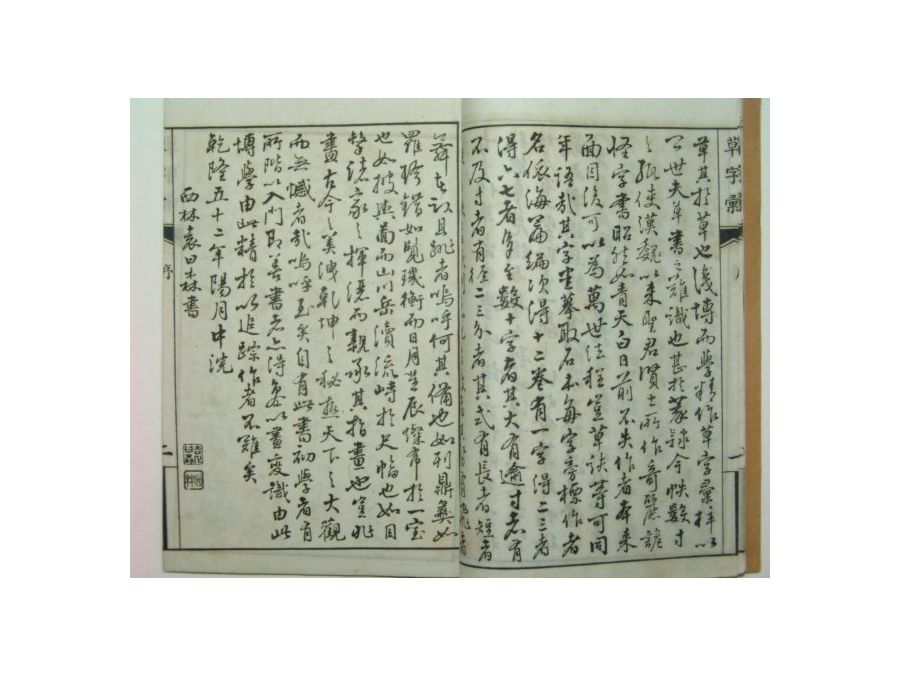 草字彙
草其於草也淺博而學精作草字彙梓以
公世夫草書之難識也甚於篆隸今帙數寸
之紙使漢魏以來聖君賢士所作奇麗詭
怪字書昭然如青天白日前不失作者本來
面目後可以為萬世法程豈草訣等可同
年語哉其字蓋摹取石本每字旁標作者
名依海篇編次得十二卷有一字得二三者
得六七者多至數十字者其大有逾寸者有
不及寸者有徑二三分者其式有長者短者
舞者以且跳者嗚呼何其備也如列鼎彝如
羅珍錯如覽璣衡而日月星辰燦布於一室
也如披輿圖而山川岳瀆流峙於尺幅也如目
擊諸家之揮灑而親承其指畫也豈非
盡古今之美洩乾坤之秘極天下之大觀
而無憾者哉嗚呼至矣自有此書初學者有
所階以入門即善書者亦得參以盡變識由此
博學由此精於以追踪作者不難矣
乾隆五十二年陽月中浣
西林袁日森書
序
二